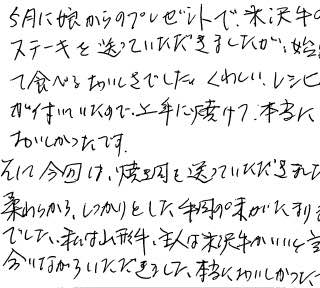 5月に娘からのプレゼントで、米沢牛の
ステーキを送っていただきましたが、始め
て食べるおいしさでした。くわしい、レシピ
が付いていたので、上手に焼けて、本当に
おいしかったです。
そして今回は、焼肉を送っていただきました
柔わらかろ、しっかりとした牛肉の味がたまりま
でした。私は山形牛、主人は米沢牛がいいと言
合いながらいただきました、本当においしかった